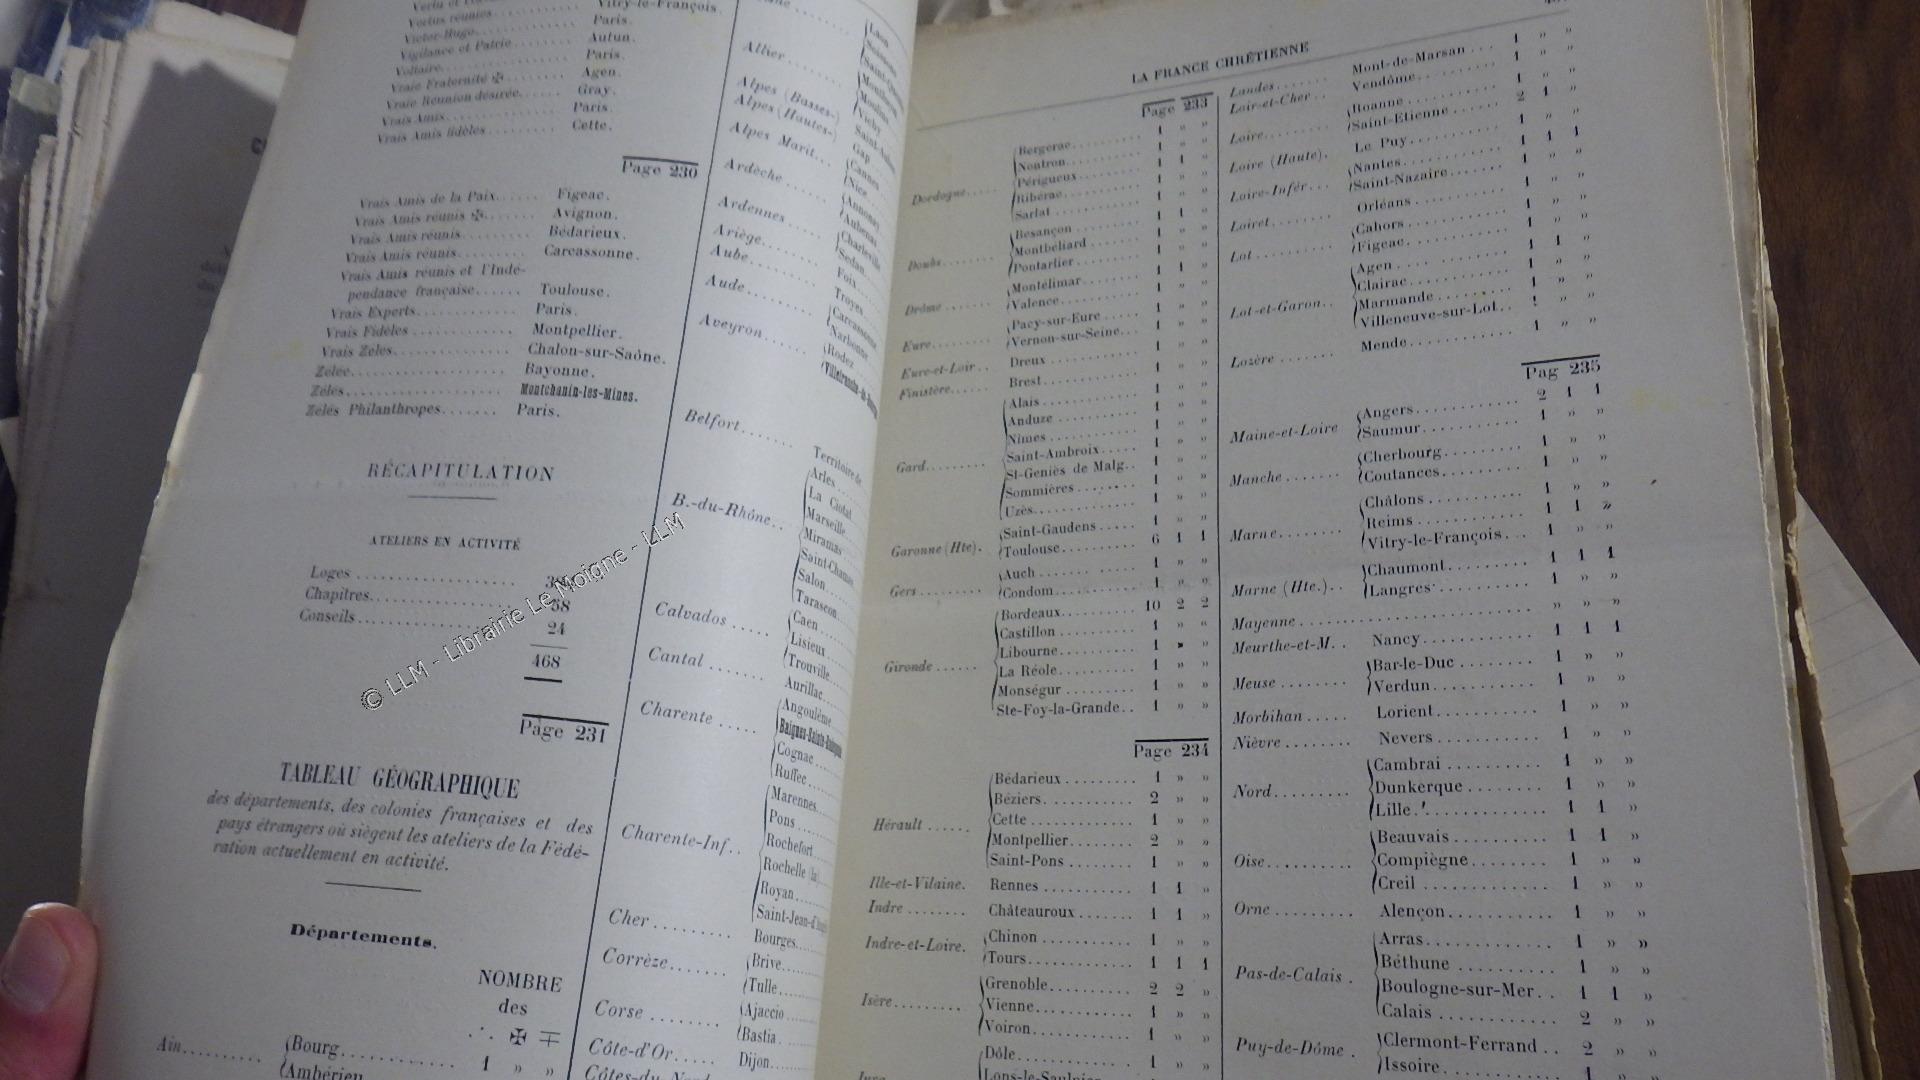 Vertus réunies ........ Vitry-le-François.
Victor-Hugo ........ Paris.
Vigilance et Patrie ........ Autun.
Voltaire ........ Paris.
Vraie Fraternité ✠ ........ Agen.
Vraie Réunion désirée ...... Gray.
Vrais Amis ........ Paris.
Vrais Amis fidèles ......... Cette.
Page 230
Vrais Amis de la Paix ...... Figeac.
Vrais Amis réunis ✠ ....... Avignon.
Vrais Amis réunis ......... Bédarieux.
Vrais Amis réunis ......... Carcassonne.
Vrais Amis réunis et l'Indé-
pendance française ...... Toulouse.
Vrais Experts ............. Paris.
Vrais Fidèles .............. Montpellier.
Vrais Zélés ............... Chalon-sur-Saône.
Zélée .................... Bayonne.
Zélés .................... Montchanin-les-Mines.
Zélés Philanthropes ....... Paris.
RÉCAPITULATION
ATELIERS EN ACTIVITÉ
Loges ...................
Chapitres ...............
Conseils ................ 24
468
Page 231
TABLEAU GÉOGRAPHIQUE
des départements, des colonies françaises et des
pays étrangers où siègent les ateliers de la Fédé-
ration actuellement en activité.
Départements.
NOMBRE
des
∴ ✠ ∓
Ain .......... Bourg .............. 1 » »
Ambérieu
Laon
Soissons
Allier ........
Moulins
Vichy
Alpes (Basses-)
Alpes (Hautes-) Gap
Alpes Marit... Cannes
Nice
Ardèche ...... Annonay
Aubenas
Ardennes ..... Charleville
Sedan
Ariège ....... Foix
Aube ......... Troyes
Aude ......... Carcassonne
Narbonne
Aveyron ...... Rodez
Belfort ....... Territoire de
B.-du-Rhône .. Arles
La Ciotat
Marseille
Miramas
Salon
Tarascon
Calvados ..... Caen
Lisieux
Trouville
Cantal ....... Aurillac
Charente ..... Angoulême
Cognac
Ruffec
Charente-Inf.. Marennes
Pons
Rochefort
Rochelle (la)
Royan
Cher ......... Bourges
Corrèze ....... Brive
Tulle
Corse ........ Ajaccio
Bastia
Côte-d'Or ..... Dijon
Côtes-du-Nord
LA FRANCE CHRÉTIENNE
Page 233
Dordogne ..... Bergerac .......... 1 » »
Nontron ........... 1 » »
Périgueux ......... 1 1 »
Ribérac ........... 1 » »
Sarlat ............ 1 » »
Doubs ........ Besançon .......... 1 1 »
Montbéliard ....... 1 » »
Pontarlier ........ 1 » »
Drôme ........ Montélimar ........ 1 1 »
Valence ........... 1 » »
Eure ......... Pacy-sur-Eure ..... 1 » »
Vernon-sur-Seine ... 1 » »
Eure-et-Loir .. Dreux ............. 1 » »
Finistère ...... Brest ............. 1 » »
Gard ......... Alais ............. 1 » »
Anduze ............ 1 » »
Nîmes ............. 1 » »
Saint-Ambroix ..... 1 » »
St-Geniès de Malg.. 1 » »
Sommières ......... 1 » »
Uzès .............. 1 » »
Garonne (Hte). Saint-Gaudens ..... 1 » »
Toulouse .......... 6 1 1
Gers ......... Auch .............. 1 » »
Condom ............ 1 » »
Gironde ...... Bordeaux .......... 10 2 2
Castillon ......... 1 » »
Libourne .......... 1 » »
La Réole .......... 1 » »
Monségur .......... 1 » »
Ste-Foy-la-Grande .. 1 » »
Page 234
Hérault ...... Bédarieux ......... 1 » »
Béziers ........... 2 » »
Cette ............. 1 » »
Montpellier ....... 2 » »
Saint-Pons ........ 1 » »
Ille-et-Vilaine. Rennes ............ 1 1 »
Indre ........ Châteauroux ....... 1 1 »
Indre-et-Loire. Chinon ............ 1 » »
Tours ............. 1 1 1
Isère ......... Grenoble .......... 2 2 »
Vienne ............ 1 » »
Voiron ............ 1 » »
Jura Dôle .............. 1 » »
Lons-le-Saulnier
Landes ....... Mont-de-Marsan ... 1 » »
Loir-et-Cher .. Vendôme .......... 1 » »
Loire ........ Roanne ........... 1 » »
Saint-Étienne ..... 2 1 »
Loire (Haute). Le Puy ........... 1 » »
Loire-Infér ... Nantes ........... 1 1 1
Saint-Nazaire ..... 1 » »
Loiret ....... Orléans .......... 1 » »
Lot .......... Cahors ........... 1 » »
Figeac ........... 1 » »
Lot-et-Garon.. Agen ............. 1 1 »
Clairac .......... 1 » »
Marmande ......... 1 » »
Villeneuve-sur-Lot.. 1 » »
Lozère ....... Mende ............ 1 » »
Pag 235
Maine-et-Loire Angers ........... 2 1 1
Saumur ........... 1 » »
Manche ....... Cherbourg ........ 1 » »
Coutances ........ 1 » »
Marne ........ Châlons .......... 1 » »
Reims ............ 1 1 »
Vitry-le-François ... 1 » »
Marne (Hte.).. Chaumont ......... 1 1 1
Langres .......... 1 » »
Mayenne .......................... » » »
Meurthe-et-M.. Nancy ............ 1 1 1
Meuse ........ Bar-le-Duc ....... 1 » »
Verdun ........... 1 » »
Morbihan ..... Lorient .......... 1 » »
Nièvre ....... Nevers ........... 1 » »
Nord ......... Cambrai .......... 1 » »
Dunkerque ........ 1 » »
Lille ............ 1 1 »
Oise ......... Beauvais ......... 1 1 »
Compiègne ........ 1 » »
Creil ............ 1 » »
Orne ......... Alençon .......... 1 » »
Pas-de-Calais . Arras ............ 1 » »
Béthune .......... 1 » »
Boulogne-sur-Mer .. 1 1 »
Calais ........... 2 » »
Puy-de-Dôme . Clermont-Ferrand .. 2 » »
Issoire .......... 1 » »
© LLM - Librairie Le Moigne - LLM